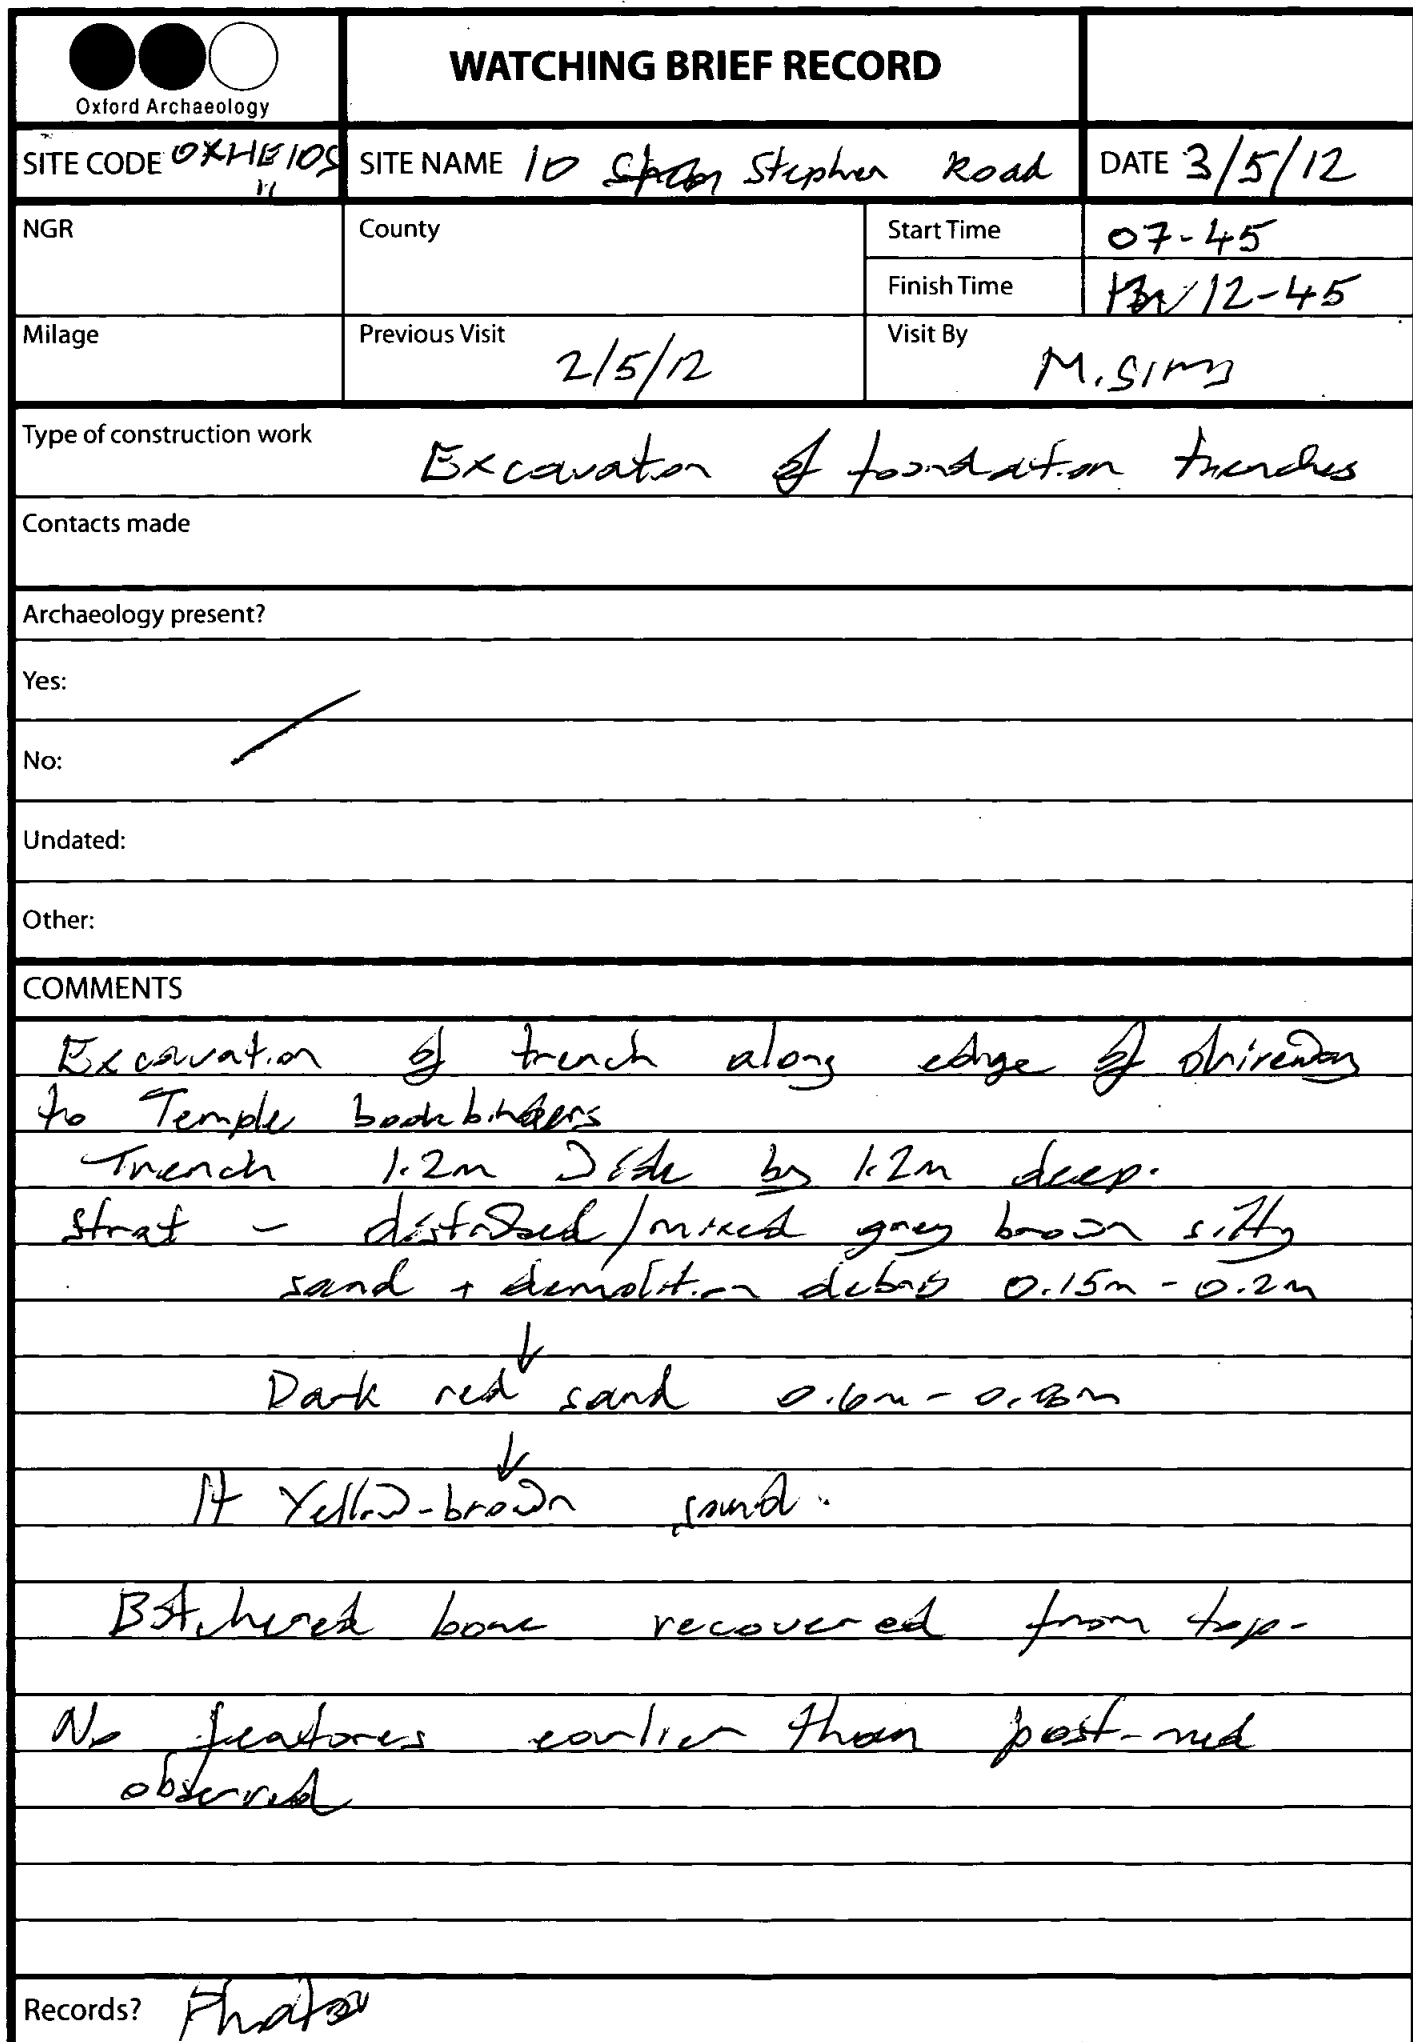 Oxford Archaeology
WATCHING BRIEF RECORD
SITE CODE OXHE10S
11
SITE NAME 10 Stephen Road
DATE 3/5/12
NGR
County
Start Time 07-45
Finish Time 12-45
Milage
Previous Visit 2/5/12
Visit By M. Sims
Type of construction work Excavation of foundation trenches
Contacts made
Archaeology present?
Yes:
No:
Undated:
Other:
COMMENTS
Excavation of trench along edge of driveway
to Temple bookbinders
Trench 1.2m wide by 1.2m deep.
strat - disturbed/mixed grey brown silty
sand + demolition debris 0.15m - 0.2m
↓
Dark red sand 0.6m - 0.8m
↓
lt Yellow-brown sand.
Butchered bone recovered from top-
No features earlier than post-med
observed
Records? Photos